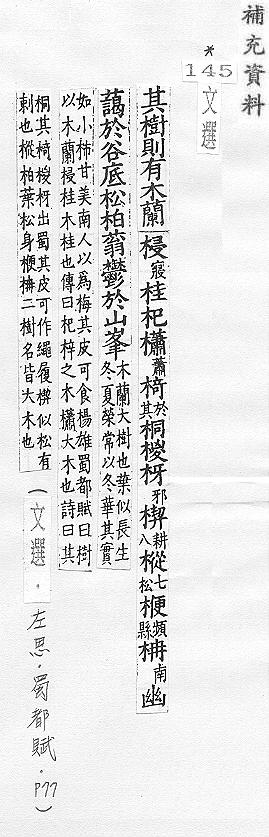 補充資料
*
145
文選
其樹則有木蘭梫寢桂杞櫹蕭椅於其桐椶枒邪楔耕八樅七松楩頻縣柟南幽
藹於谷底松柏蓊鬱於山峯木蘭大樹也葉似長生冬夏榮常以冬華其實
如小柿甘美南人以為梅其皮可食楊雄蜀都賦曰樹以木蘭梫桂木桂也傳曰杞梓之木櫹大木也詩曰其
桐其椅椶枒出蜀其皮可作繩履楔似松有刺也樅柏葉松身楩柟二樹名皆大木也
(文選·左思·蜀都賦·P77)